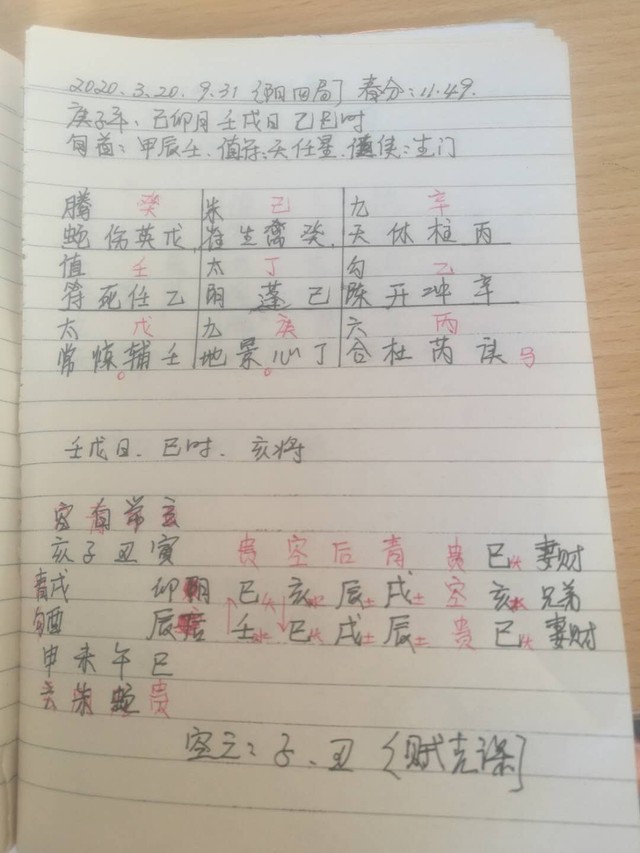 2020.3.20.9.31 {阳四局] 春分:11.49.
庚子年、己卯月 壬戌日 乙巳时
旬首:甲辰壬.值符:天任星.值使:生门
腾 癸 朱 己 九 辛
蛇 伤 英 戊 雀 生 离 癸 天 休 柱 丙
值 壬 太 丁 勾 乙
符 死 任 乙 阴 蓬 己 陈 开 冲 辛
太 戊 九 庚 六 丙
常 惊 辅 壬 地 景 心 丁 合 杜 芮 庚 马
壬戌日.巳时.亥将
空 常 玄
亥 子 丑 寅 贵 空 后 青 贵 巳火 妻财
青戌 卯阴 巳火 亥水 辰土 戌土 空 亥水 兄弟
酉 辰后 壬水 巳火 戌土 辰土 贵 巳火 妻财
申 未 午 巳
朱 蛇 贵
空亡:子、丑 {贼克课]